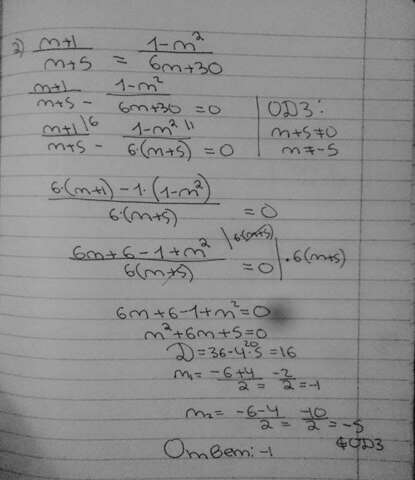 2) m+1/m+5 = 1-m²/6m+30
m+1/m+5 - 1-m²/6m+30 = 0 | ОДЗ:
m+5≠0
m≠-5
m+1|6/m+5 - 1-m²|1/6·(m+5) = 0
6·(m+1)-1·(1-m²)/6·(m+5) = 0
6m+6-1+m²|6(m+5)/6(m+5) = 0 |·6(m+5)
6m+6-1+m²=0
m²+6m+5=0
D=36-4·5=16
20
m₁= -6+4/2 = -2/2 = -1
m₂= -6-4/2 = -10/2 = -5
∉ОДЗ
Ответ: -1